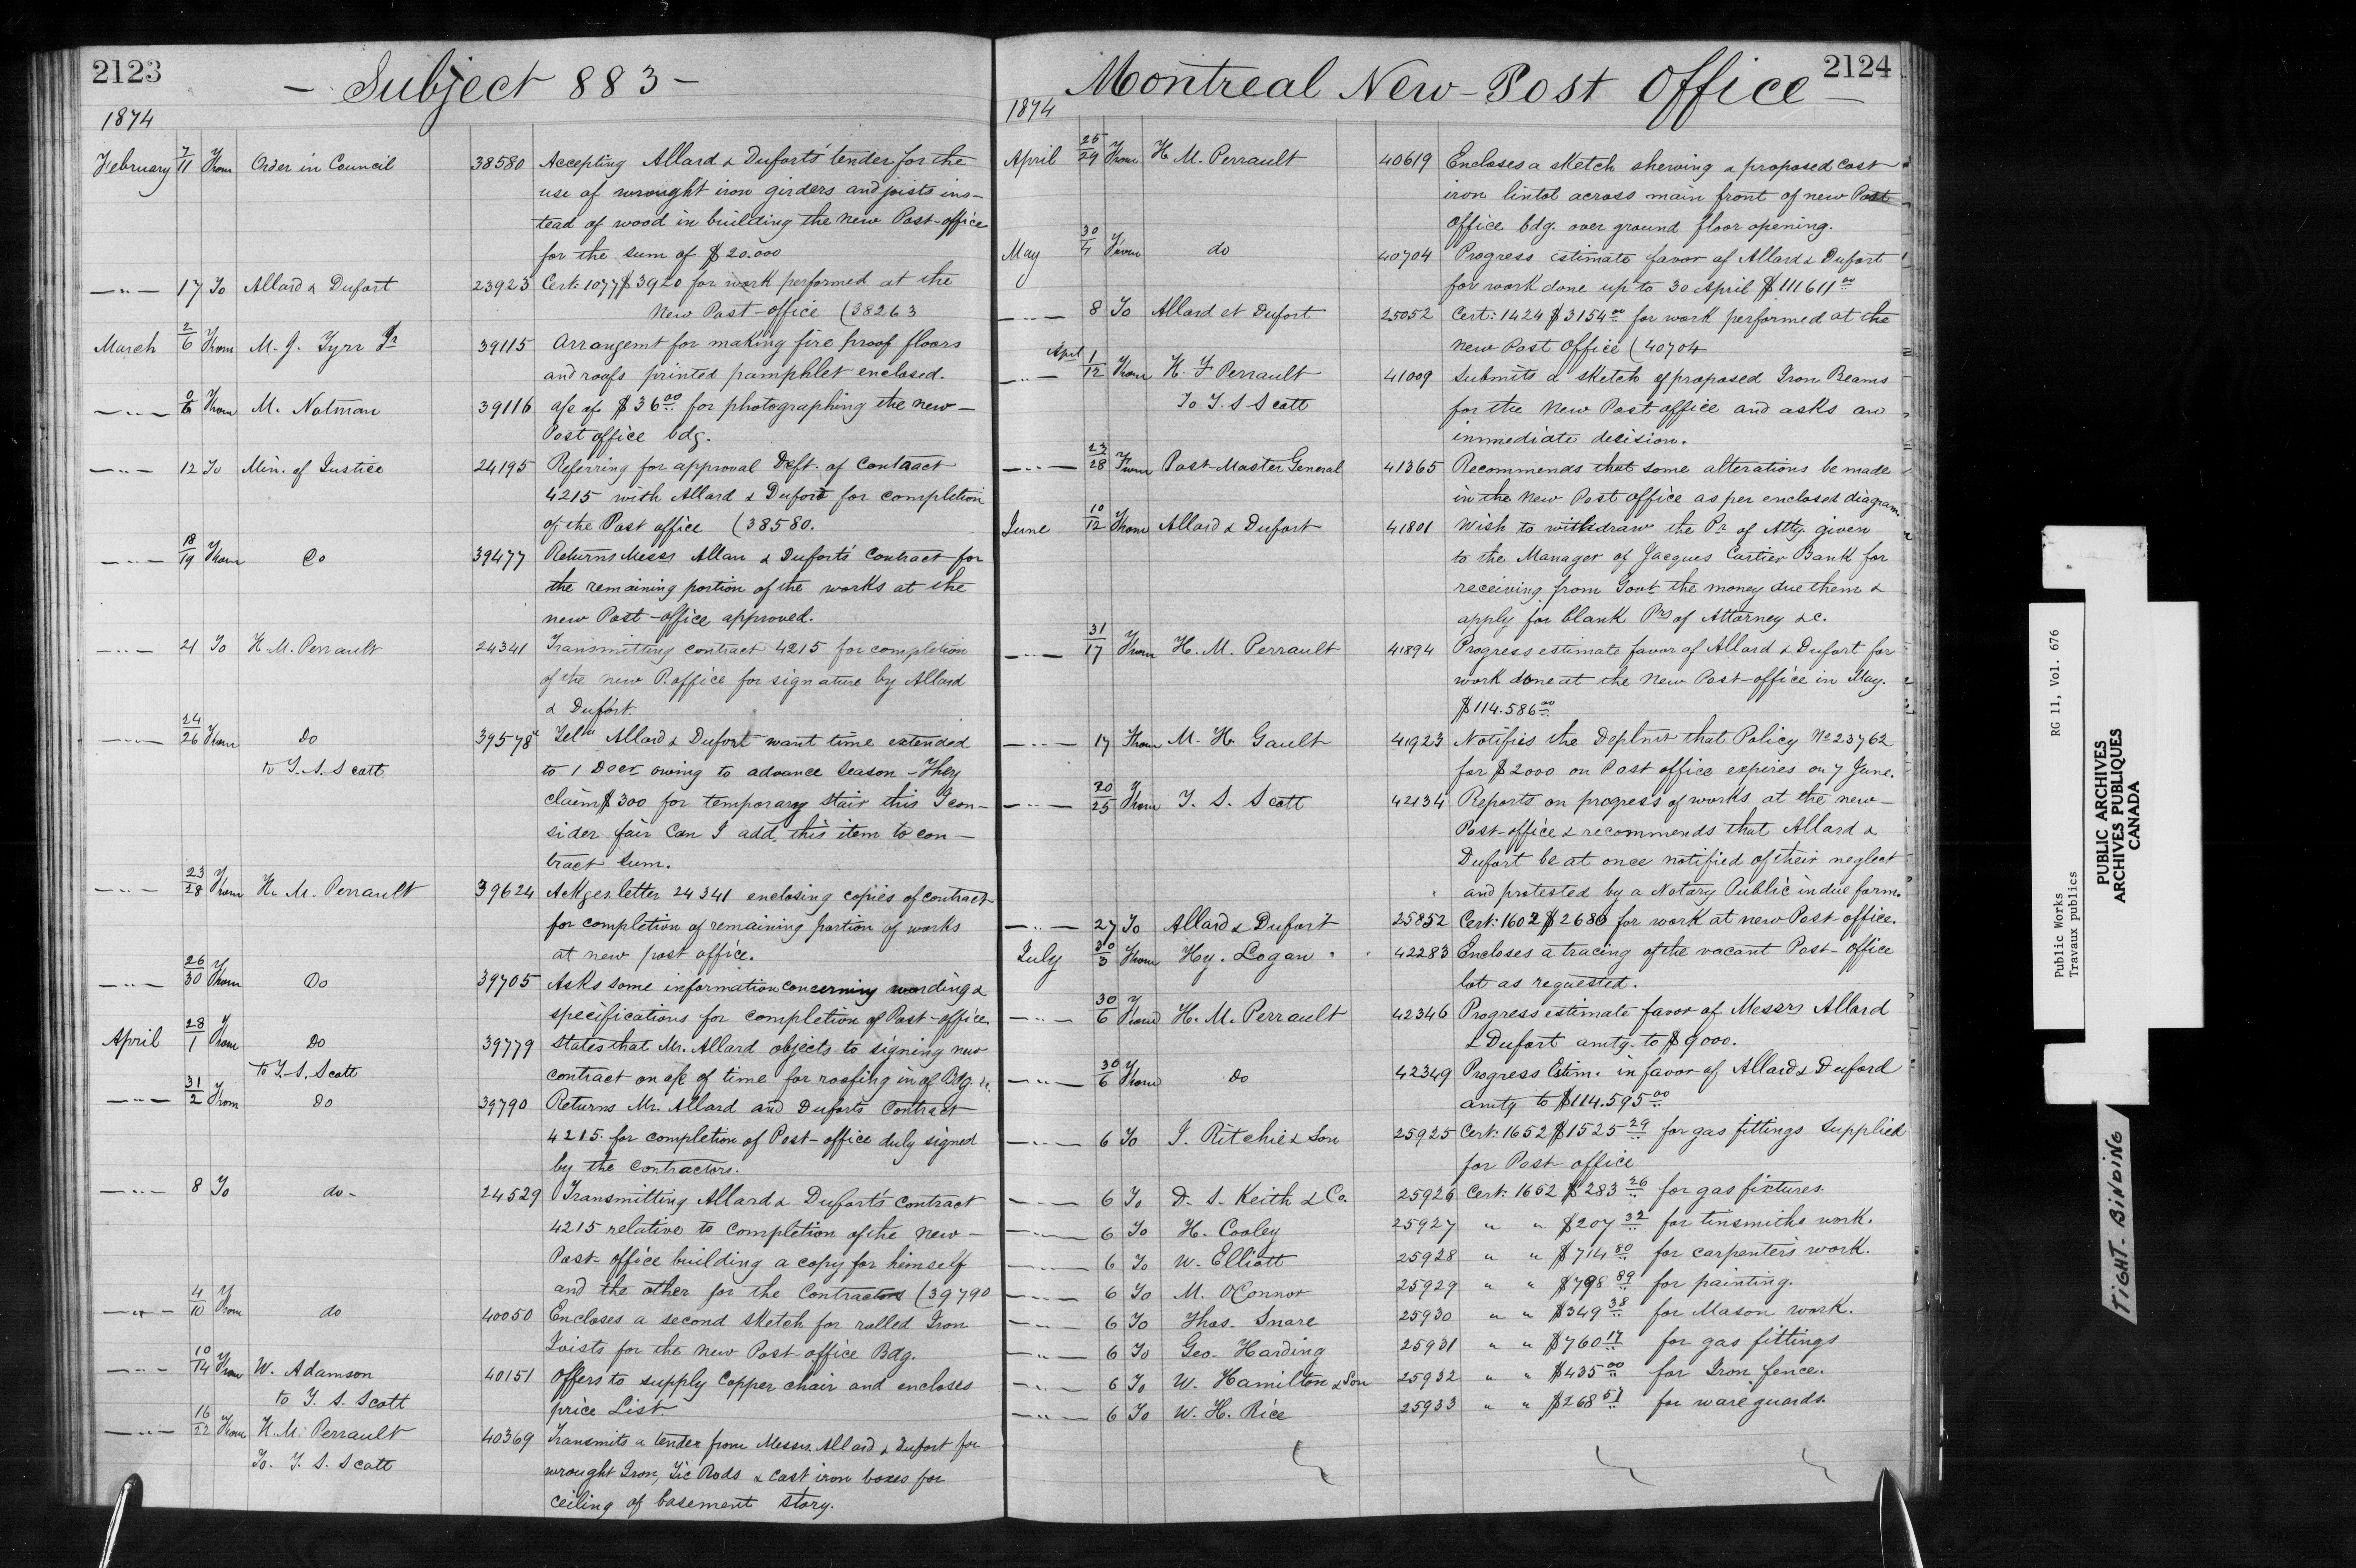 2123
- Subject 883 -
1874
February 7/11 From Order in Council 38580 Accepting Allard & Duforts' tender for the
use of wrought iron girders and joists ins-
tead of wood in building the new Post-office
for the sum of $20.000
—"— 17 To Allard & Dufort 23923 Cert: 1077 $3920 for work performed at the
New Post-office (38263
March 2/6 From M. J. Tyrr Jr 39115 Arrangemt for making fire proof floors
and roofs printed pamphlet enclosed.
—"— 6 From M. Notman 39116 a/c of $36.00 for photographing the new-
Post office bdg.
—"— 12 To Min. of Justice 24195 Referring for approval Dft. of Contract
4215 with Allard & Dufort for completion
of the Post office (38580.
—"— 18/19 From Do 39477 Returns Messs Allan & Duforts' Contract for
the remaining portion of the works at the
new Post-office approved.
—"— 21 To H. M. Perrault 24341 Transmitting contract 4215 for completion
of the new P. office for signature by Allard
& Dufort.
—"— 24/26 From Do 39578 Tel. Allard & Dufort want time extended
to T. S. Scott to 1 Decr owing to advance season - They
claim $300 for temporary stair this I con-
sider fair Can I add this item to con-
tract sum.
—"— 23/28 From H. M. Perrault 39624 Ackges letter 24341 enclosing copies of contract
for completion of remaining portion of works
at new post office.
—"— 26/30 From Do 39705 Asks some information concerning wording &
specifications for completion of Post-office.
April 28/1 From Do 39779 States that Mr. Allard objects to signing new
to T. S. Scott contract on a/c of time for roofing in of Bdg. &c.
—"— 31/2 From Do 39790 Returns Mr. Allard and Dufort's Contract
4215 for completion of Post-office duly signed
by the Contractors.
—"— 8 To do- 24529 Transmitting Allard & Dufort's Contract
4215 relative to completion of the New-
Post-office building a copy for himself
and the other for the Contractors (39790
—"— 4/10 From do 40050 Encloses a second sketch for rolled Iron
Joists for the new Post-office Bdg.
—"— 10/14 From W. Adamson 40151 Offers to supply Copper chair and encloses
to T. S. Scott price List.
—"— 16/22 From H. M. Perrault 40369 Transmits a tender from Messrs. Allard & Dufort for
To. T. S. Scott wrought Iron, Tie Rods & cast iron boxes for
ceiling of basement story.
2124
Montreal New-Post Office -
1874
April 25/29 From H. M. Perrault 40619 Encloses a sketch shewing a proposed cast
iron lintol across main front of new Post
Office bdg. over ground floor opening.
May 30/4 From do 40704 Progress estimate favor of Allard & Dufort
for work done up to 30 April $111611.00
—"— 8 To Allard et Dufort 25052 Cert: 1424 $3154.00 for work performed at the
new Post Office (40704
—"— April 1/12 From H. F Perrault 41009 Submits a sketch of proposed Iron Beams
To T. S Scott for the New Post office and asks an
immediate decision.
—"— 27/28 From Post-Master General 41365 Recommends that some alterations be made
in the New Post office as per enclosed diagram.
June 10/12 From Allard & Dufort 41801 Wish to withdraw the Pr of Atty. given
to the Manager of Jacques Cartier Bank for
receiving from Govt the money due them &
apply for blank Prs of Attorney &c.
—"— 31/17 From H. M. Perrault 41894 Progress estimate favor of Allard & Dufort for
work done at the New Post-office in May.
$114.586.00
—"— 17 From M. H. Gault 41923 Notifies the Deptmt that Policy No 23762
for $2000 on Post office expires on 7 June.
—"— 20/25 From T. S. Scott 42134 Reports on progress of works at the new-
Post-office & recommends that Allard &
Dufort be at once notified of their neglect
and protested by a Notary Public in due form.
—"— 27 To Allard & Dufort 25852 Cert: 1602 $2680 for work at new Post-office.
July 30/3 From Hy. Logan 42283 Encloses a tracing of the vacant Post-office
lot as requested.
—"— 30/6 From H. M. Perrault 42346 Progress estimate favor of Messrs Allard
& Dufort amtg. to $9000.
—"— 30/6 From do 42349 Progress Estim. in favor of Allard & Duford
amtg to $114.595.00
—"— 6 To J. Ritchie & Son 25925 Cert: 1652 $1525.29 for gas fittings supplied
for Post-office
—"— 6 To D. S. Keith & Co. 25926 Cert: 1652 $283.26 for gas fixtures.
—"— 6 To H. Cooley 25927 " " $207.32 for tinsmiths work.
—"— 6 To W. Elliott 25928 " " $714.80 for carpenter's work.
—"— 6 To M. OConnor 25929 " " $798.89 for painting.
—"— 6 To Thos. Snare 25930 " " $349.38 for Mason work.
—"— 6 To Geo. Harding 25931 " " $760.17 for gas fittings
—"— 6 To W. Hamilton & Son 25932 " " $435.00 for Iron fence.
—"— 6 To W. H. Rice 25933 " " $268.57 for ware guards.
Public Works RG 11, Vol. 676
Travaux publics
PUBLIC ARCHIVES
ARCHIVES PUBLIQUES
CANADA
TIGHT-BINDING